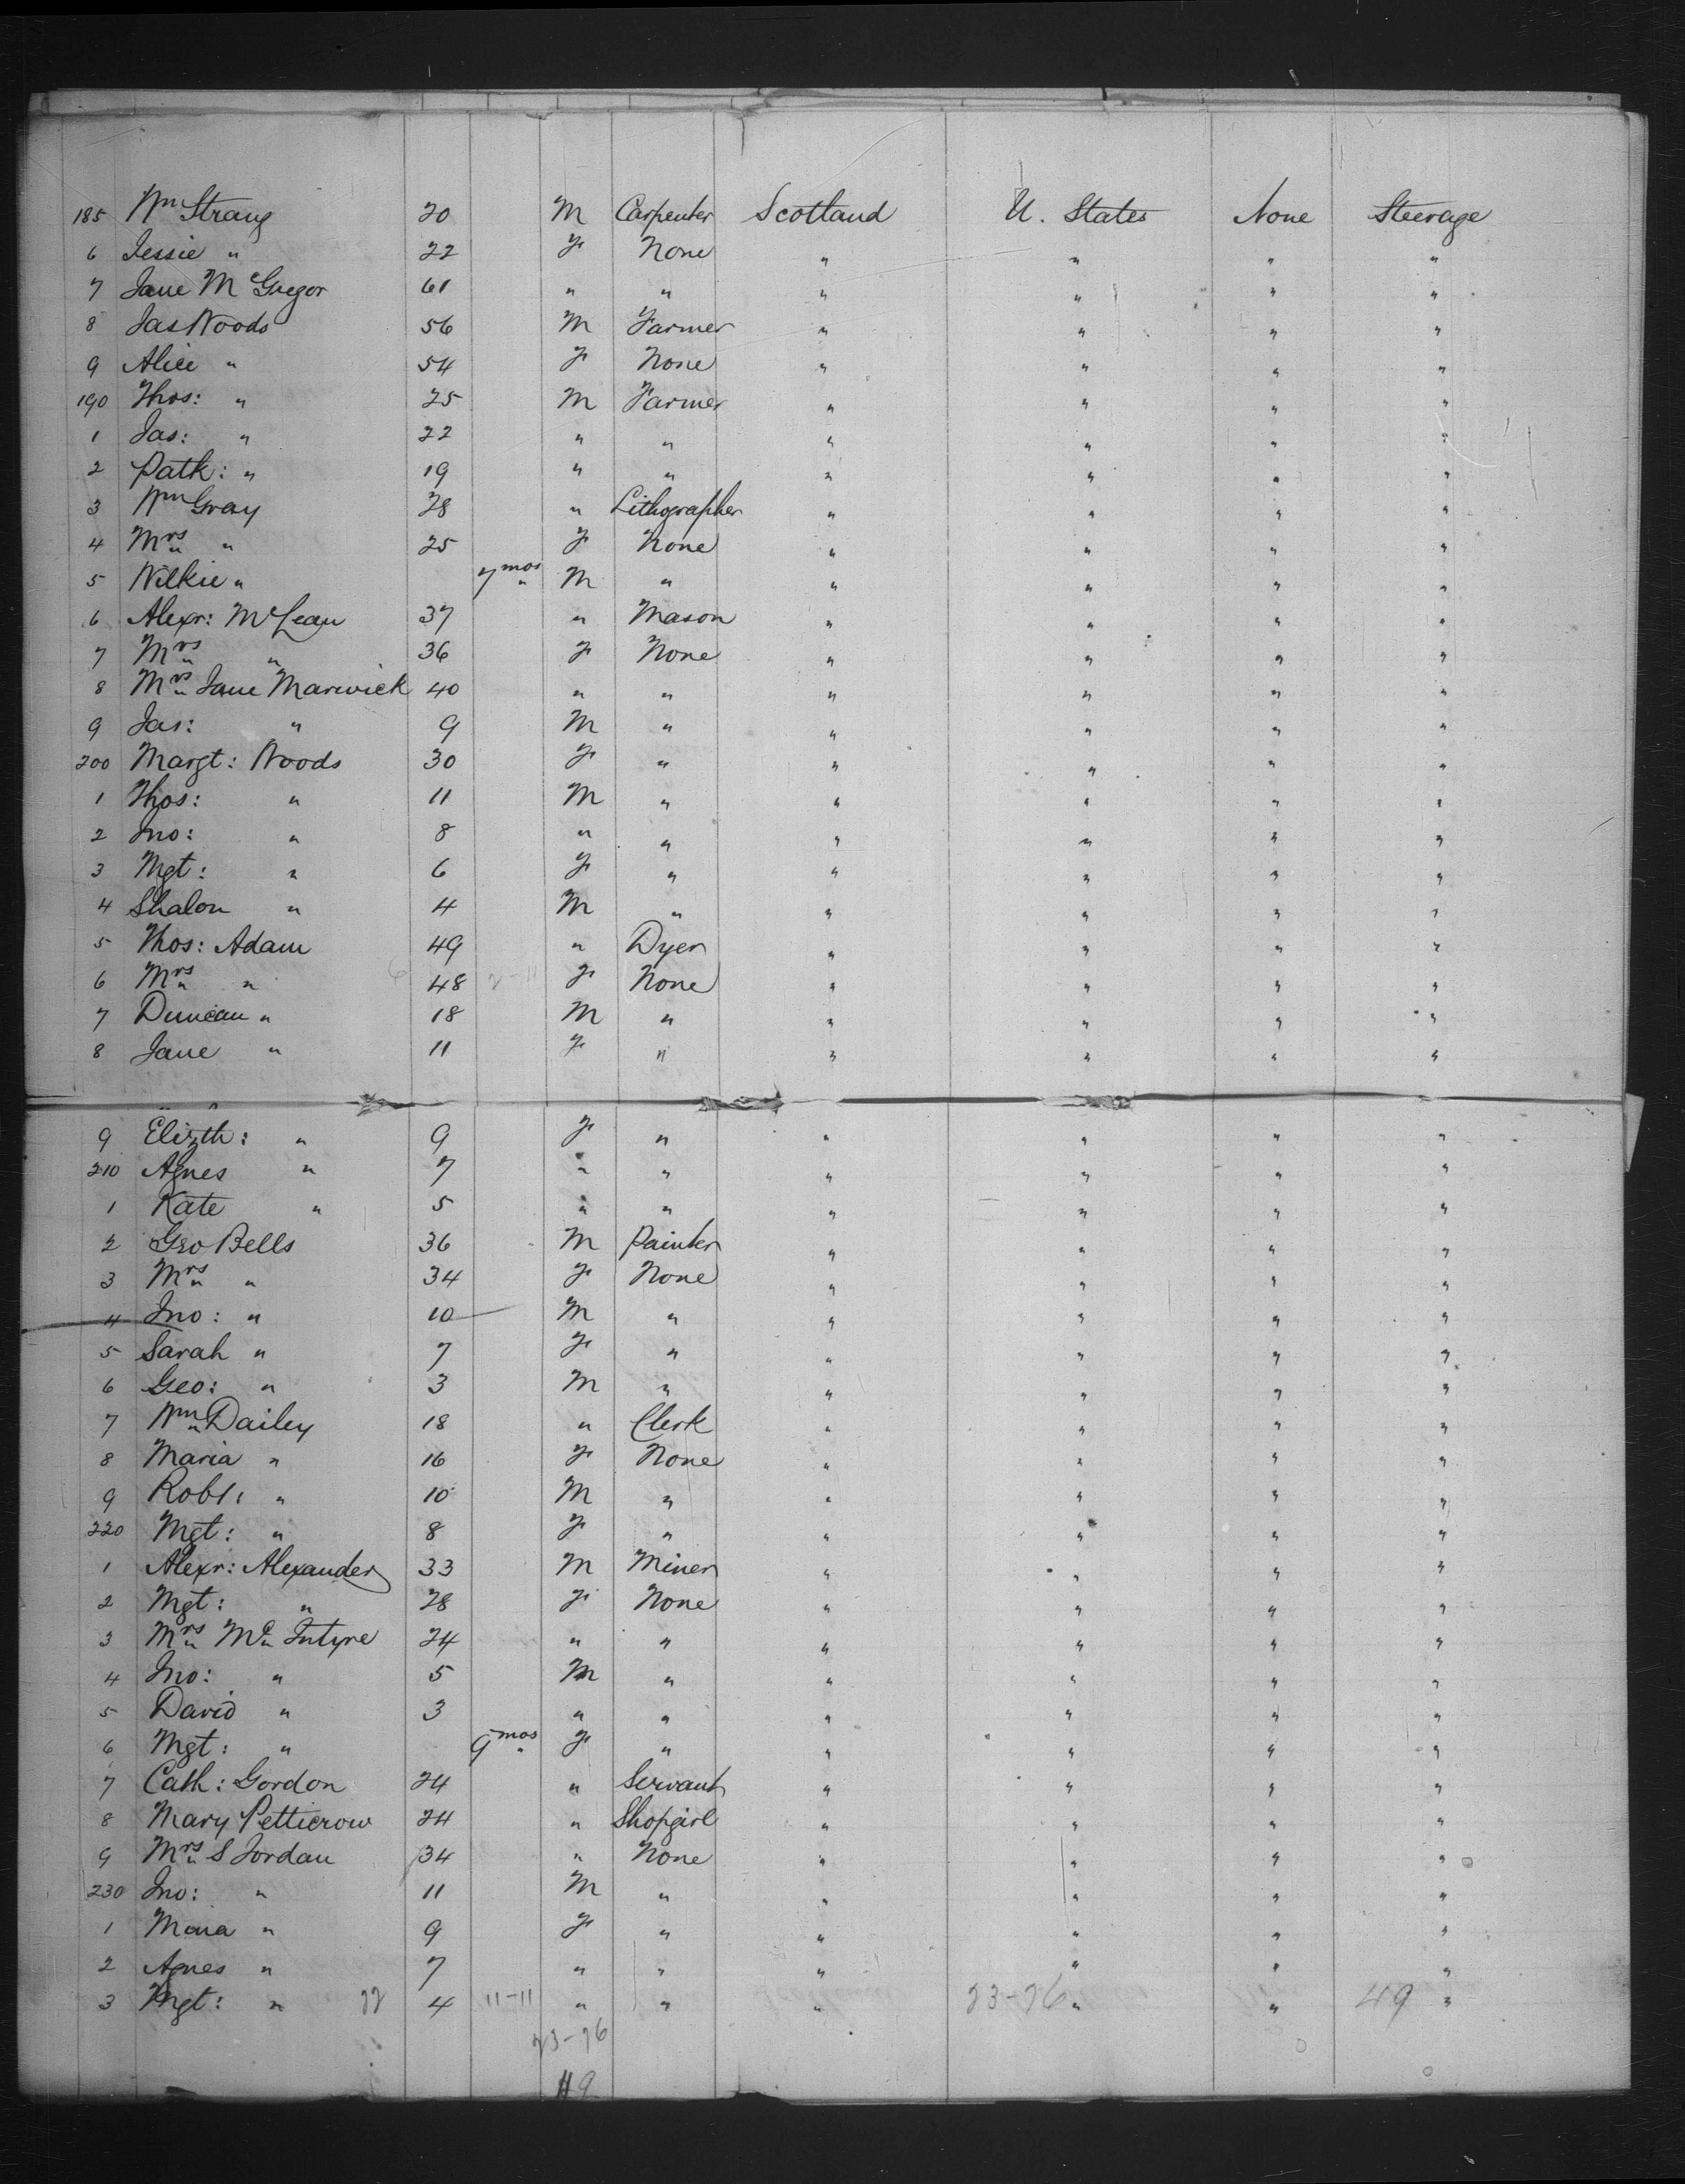 185 Wm Strang 20 M Carpenter Scotland U. States None Steerage
6 Jessie " 22 F None " " " "
7 Jane McGregor 61 " " " " " "
8 Jas Woods 56 M Farmer " " " "
9 Alice " 54 F None " " " "
190 Thos: " 25 M Farmer " " " "
1 Jas: " 22 " " " " " "
2 Patk: " 19 " " " " " "
3 Wm Gray 28 " Lithographer " " " "
4 Mrs " 25 F None " " " "
5 Wilkie " 7 mos M " " " " "
6 Alexr: McLean 37 " Mason " " " "
7 Mrs " 36 F None " " " "
8 Mrs Jane Marwick 40 " " " " " "
9 Jas: " 9 M " " " " "
200 Margt: Woods 30 F " " " " "
1 Thos: " 11 M " " " " "
2 Jno: " 8 " " " " " "
3 Mgt: " 6 F " " " " "
4 Shalon " 4 M " " " " "
5 Thos: Adam 49 " Dyer " " " "
6 Mrs " 48 F None " " " "
7 Duncan " 18 M " " " " "
8 Jane " 11 F " " " " "
9 Elizth: " 9 F " " " " "
210 Agnes " 7 " " " " " "
1 Kate " 5 " " " " " "
2 Geo Bells 36 M Painter " " " "
3 Mrs " 34 F None " " " "
4 Jno: " 10 M " " " " "
5 Sarah " 7 F " " " " "
6 Geo: " 3 M " " " " "
7 Wm Dailey 18 " Clerk " " " "
8 Maria " 16 F None " " " "
9 Robt: " 10 M " " " " "
220 Mgt: " 8 F " " " " "
1 Alexr: Alexander 33 M Miner " " " "
2 Mgt: " 28 F None " " " "
3 Mrs Mc Intyre 24 " " " " " "
4 Jno: " 5 M " " " " "
5 David " 3 " " " " " "
6 Mgt: " 9 mos F " " " " "
7 Cath: Gordon 24 " Servant " " " "
8 Mary Petticrow 24 " Shopgirl " " " "
9 Mrs S Jordan 34 " None " " " "
230 Jno: " 11 M " " " " "
1 Maria " 9 F " " " " "
2 Agnes " 7 " " " " " "
3 Mgt: " 4 11-11 " " " 23-26 " " 49 "
23-26
49